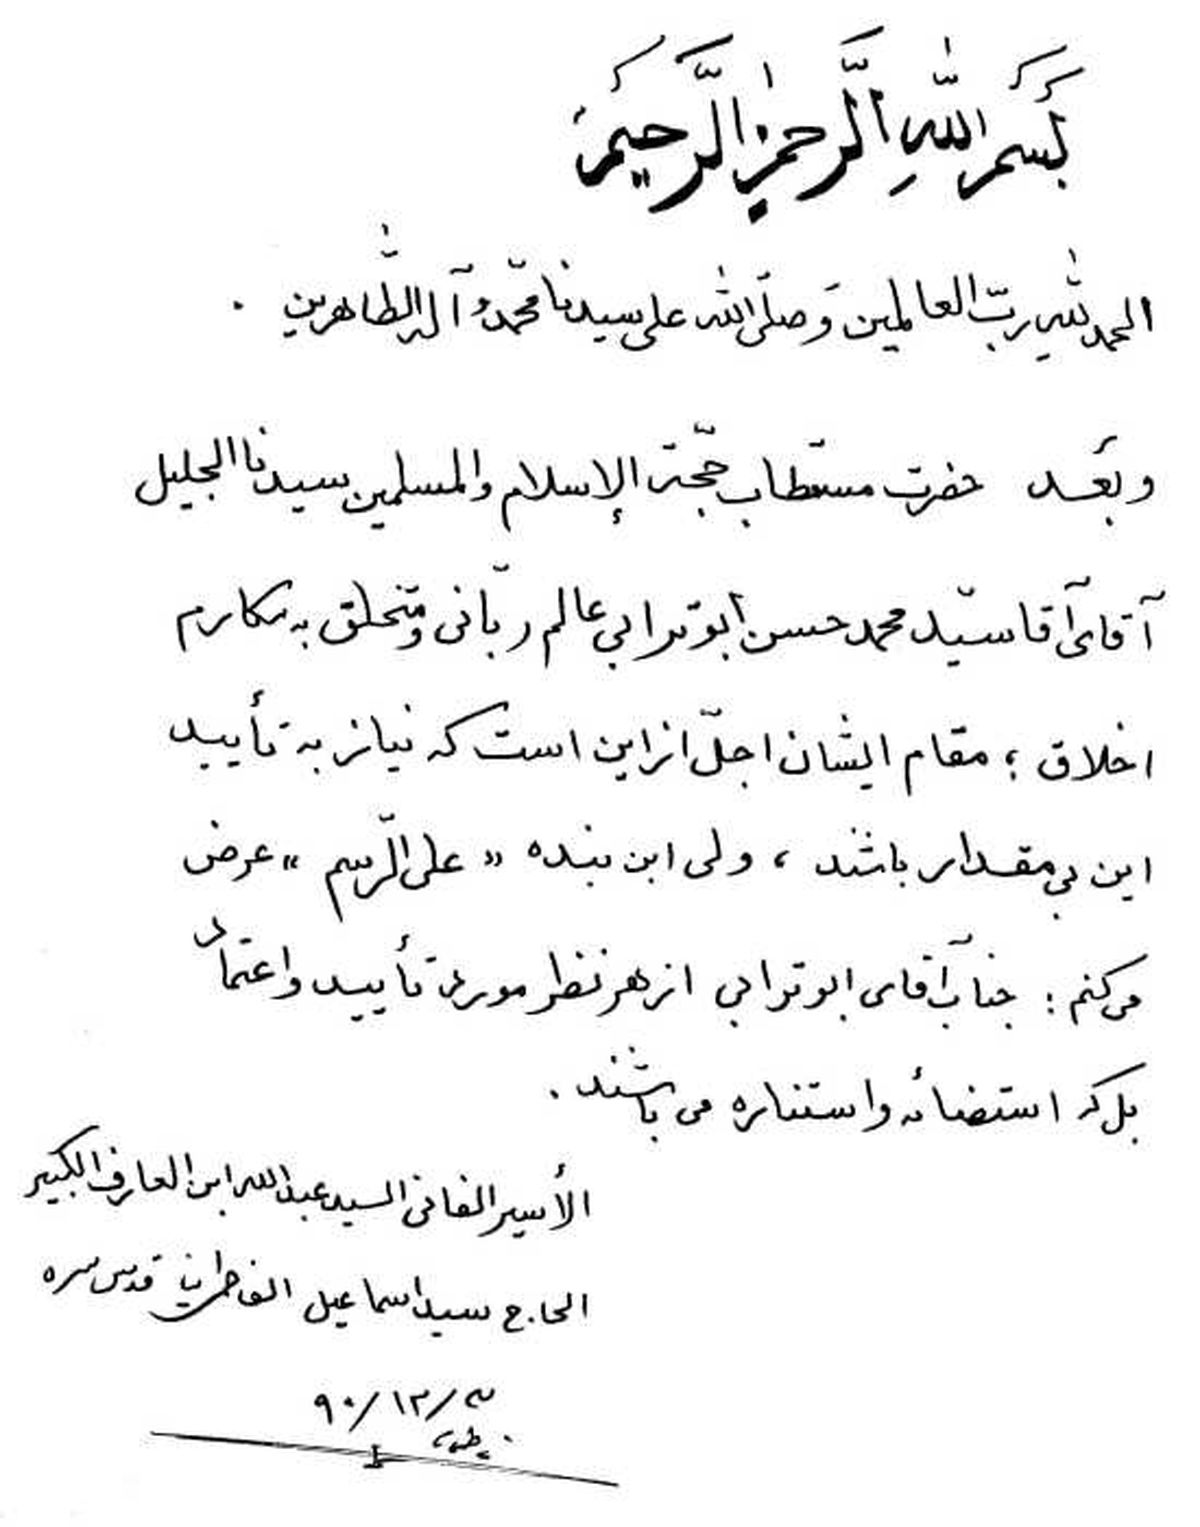 بِسْمِ اللّٰهِ الرَّحْمٰنِ الرَّحِيمِ
الحمد للّٰهِ ربّ العالمين وَ صلّى اللّه على سيدنا محمّد و آله الطّاهرين .
و بَعد حضرت مستطاب حجّة الإسلام والمسلمين سيدنا الجليل
آقاى آقا سيّد محمد حسن ابوترابی عالم ربّانى و متخلق به مكارم
اخلاق ؛ مقام ايشان اجلّ از اين است كه نياز به تأييد
اين بی مقدار باشند ، ولى اين بنده « على الرّسم » عرض
می كنم : جناب آقاى ابوترابی از هر نظر مورد تأييد و اعتماد
بل كه استضائه و استناره می باشند .
الأسير الفانى السيد عبدالله ابن العارف الكبير
الحاج سيد اسماعيل الفاطمى قدس سره
۹۰/۱۲/۳